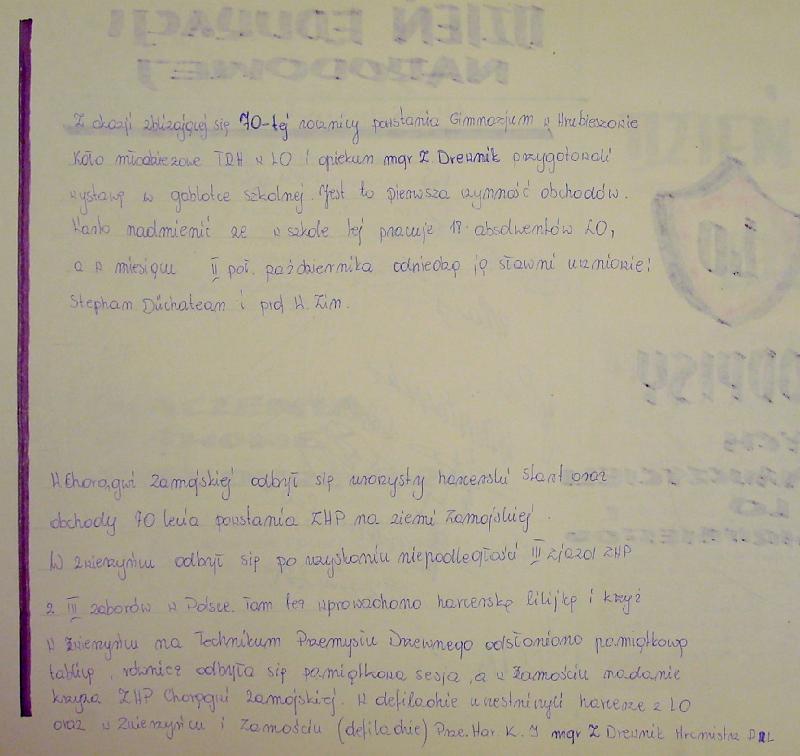 Z okazji zbliżającej się 70-tej rocznicy powstania Gimnazjum w Hrubieszowie
Koło młodzieżowe TRH w LO i opiekun mgr Z Drewnik przygotowali
wystawę w gablotce szkolnej. Jest to pierwsza czynność obchodów.
Warto nadmienić że w szkole tej pracuje 18 absolwentów LO,
a w miesiącu II poł. października odwiedzą ją sławni uczniowie:
Stephan Düchatean i prof W. Zin.
W Chorągwi Zamojskiej odbył się uroczysty harcerski Start oraz
obchody 70 lecia powstania ZHP na ziemi Zamojskiej.
W Zwierzyńcu odbył się po uzyskaniu niepodległości III zjazd ZHP
z III zaborów w Polsce. Tam też wprowadzono harcerską lilijkę i krzyż
w Zwierzyńcu na Technikum Przemysłu Drzewnego odsłoniano pamiątkową
tablicę, również odbyła się pamiątkowa sesja, a w Zamościu nadanie
krzyża ZHP Chorągwi Zamojskiej. W defiladzie uczestniczyli harcerze z LO
oraz w Zwierzyńcu i Zamościu (defiladzie) Prze. Har. K. I mgr Z Drewnik Hrcmistrz PRL
DZIEŃ EDUKACJI
NARODOWEJ
LO